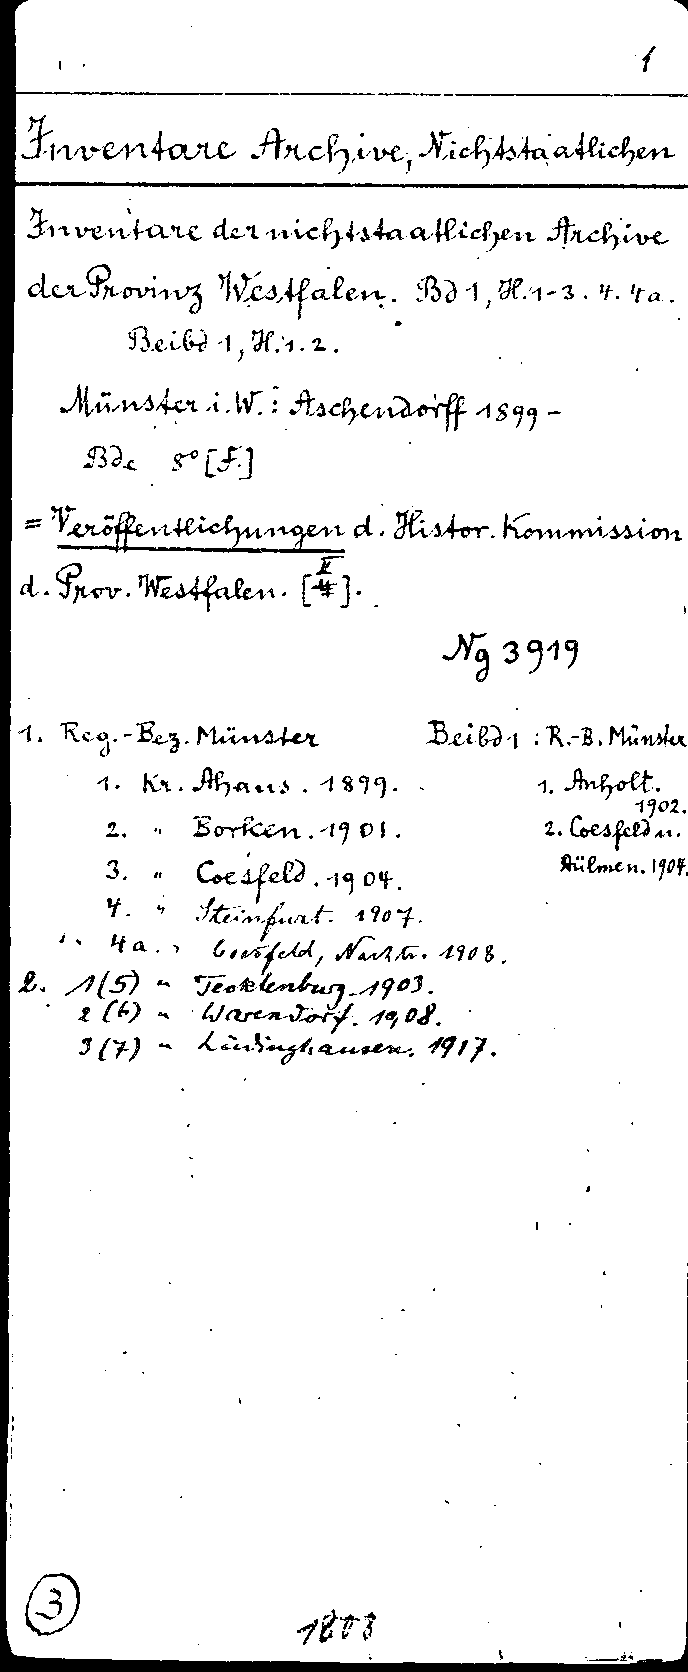 1
Inventare Archive, Nichtstaatlichen
Inventare der nichtstaatlichen Archive
der Provinz Westfalen. Bd 1, H. 1-3. 4. 4a.
Beibd 1, H. 1. 2.
Münster i. W.: Aschendorff 1899-
Bde 8° [F.]
= Veröffentlichungen d. Histor. Kommission
d. Prov. Westfalen. [II].
Ng 3919
1. Reg.-Bez. Münster
1. Kr. Ahaus. 1899.
2. " Borken. 1901.
3. " Coesfeld. 1904.
4. " Steinfurt. 1907.
4a. " Coesfeld, Nachtr. 1908.
2. 1(5) " Tecklenburg. 1903.
2(6) " Warendorf. 1908.
3(7) " Lüdinghausen. 1917.
Beibd 1: R.-B. Münster
1. Anholt.
1902.
2. Coesfeld u.
Dülmen. 1904.
3
1803